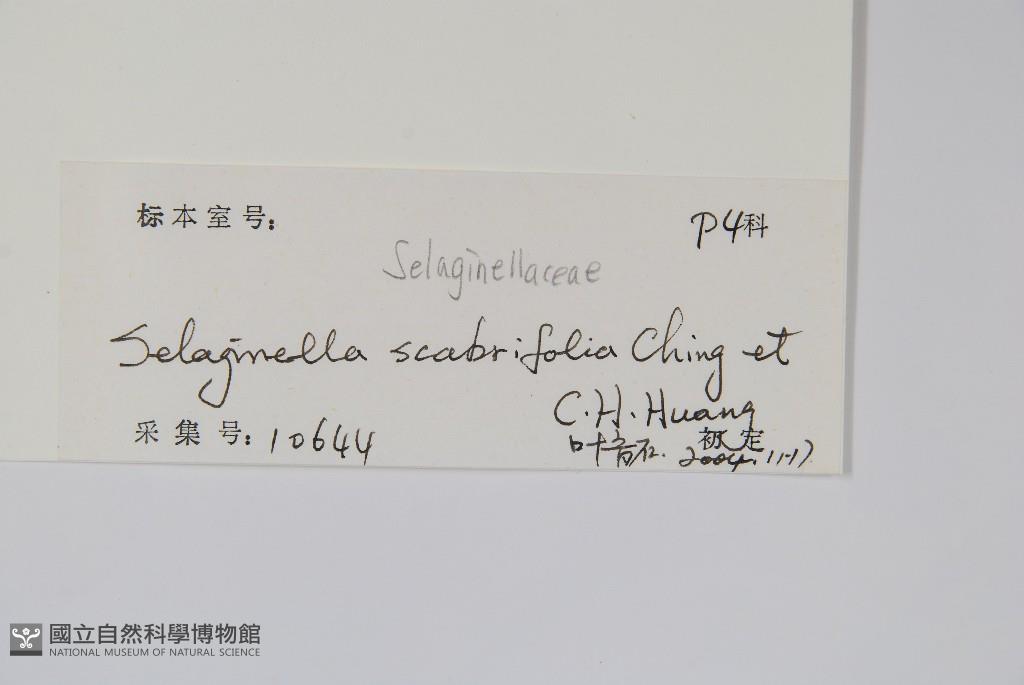 标本室号：
P4科
Selaginellaceae
Selaginella scabrifolia Ching et
C.H.Huang
采集号：10644
初定
叶 2004.11.17
國立自然科學博物館
NATIONAL MUSEUM OF NATURAL SCIENCE